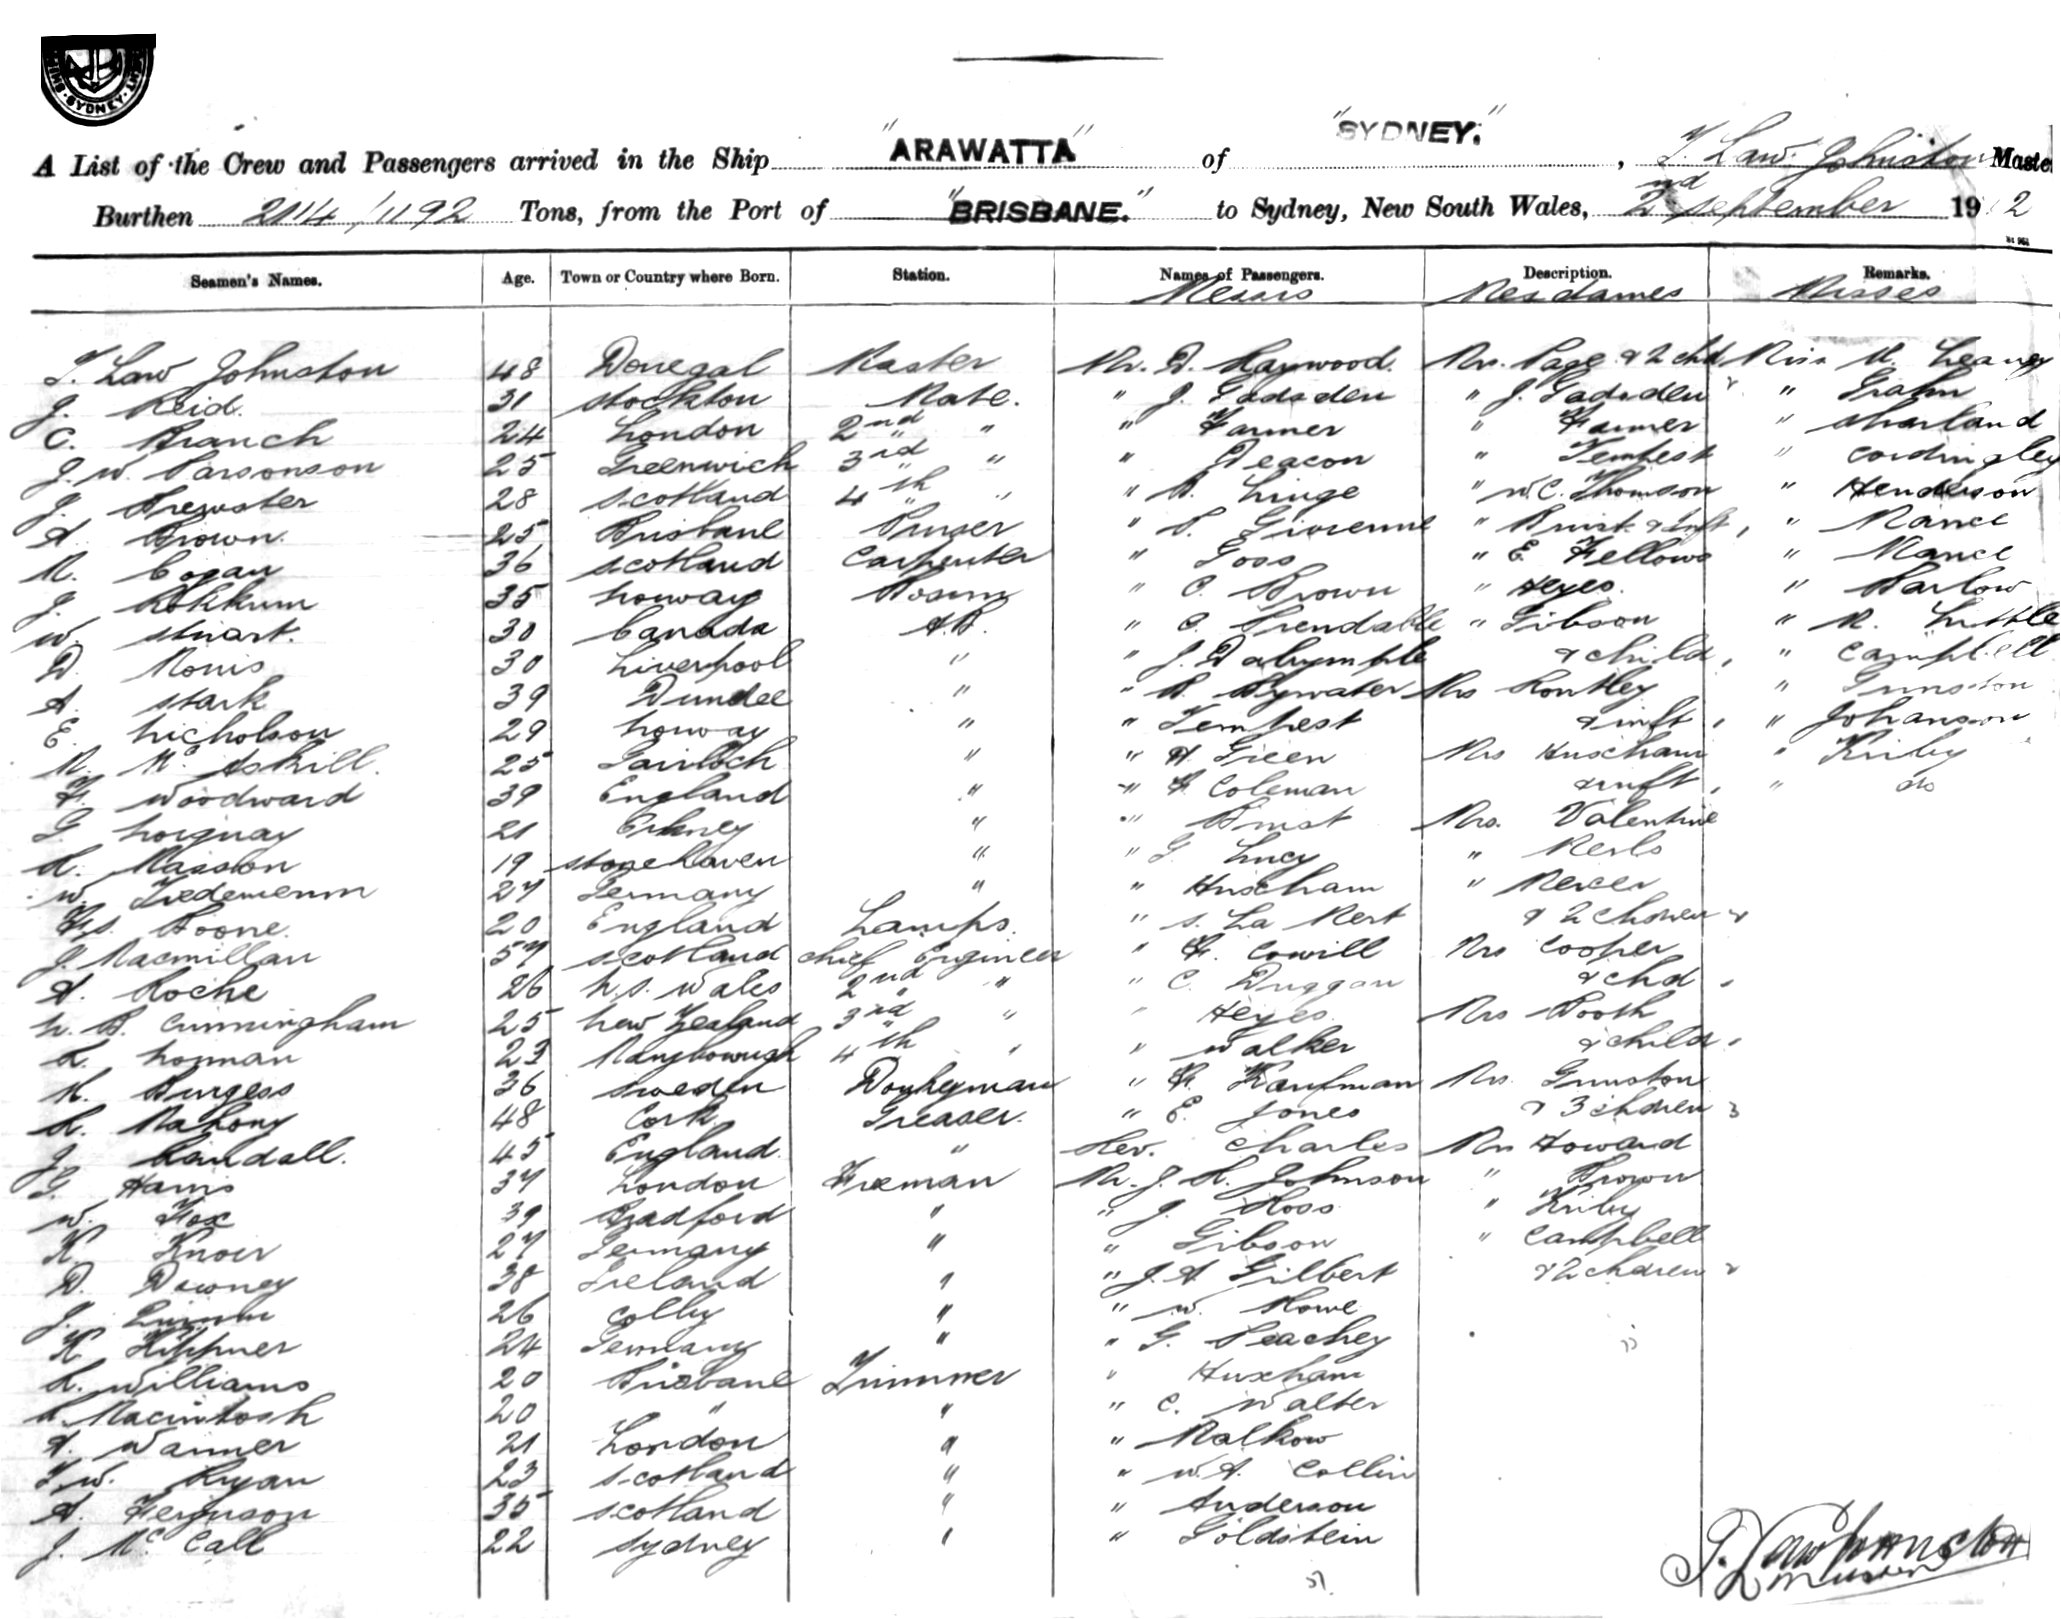 SYDNEY
"ARAWATTA" "SYDNEY."
A List of the Crew and Passengers arrived in the Ship of , T. Law. Johnston Master
Burthen 2114/1192 Tons, from the Port of "BRISBANE." to Sydney, New South Wales, 2nd September 19 2
Seamen's Names. Age. Town or Country where Born. Station. Names of Passengers. Description. Remarks.
Messrs Mesdames Misses
T. Law Johnston 48 Donegal Master Mr. D. Haywood. Mrs. Page & 2 chd Miss M. Leaney
J. Reid. 31 Stockton Mate. " J. Gadsden " J. Gadsden " Grahn
C. Branch 24 London 2nd " " Farmer " Farmer " Sharland
J. W. Parsonson 25 Greenwich 3rd " " Deacon " Tempest " Cordingley
J. Brewster 28 Scotland 4th " " B. Linge " W.C. Thomson " Henderson
A. Brown. 25 Brisbane Purser " P. " & Inft, " Mance
R. Cogan 36 Scotland Carpenter " Goss " E. Fellows " Mance
J. Rokkum 35 Norway Bosun " C. Brown " Heyes. " Barlow
W. Stuart. 30 Canada A.B. " C. Trendable " Gibson " M. Little
D. Morris 30 Liverpool " " J. Dalrymple & child, " Campbell
A. Stark 39 Dundee " " B. Bywater Mrs Rontley " Gunston
E. Nicholson 29 Norway " " Tempest & inft , " Johanson
M. McAskill. 25 Gairloch " " H. Green Mrs Huxham " Kirby
F. Woodward 39 England " " F. Coleman & inft , " do
G. Norquay 21 Orkney " " Mrs. Valentine
R. Masson 19 Stonehaven " " G. Lucy " Merls
W. Tiedemenn 27 Germany " " Huxham " Mercer
Fs. Boone. 20 England Lamps. " S. La Mert & 2 chdren
J. Macmillan 57 Scotland Chief Engineer " F. Cowill Mrs Cooper
A. Roche 26 N.S. Wales 2nd " " C. Duggan & chd
N. B. Cunningham 25 New Zealand 3rd " " Heyes Mrs Booth
R. Norman 23 Maryborough 4th " " Walker & child
H. Burgess 36 Sweden Donkeyman " F. Kaufman Mrs. Gunston
R. Mahony 48 Cork Greaser. " E. Jones & 3 chdren 3
J. Randall. 45 England " Rev. Charles Mrs Howard
G. Harris 37 London Fireman Mr. J. R. Johnson " Brown
W. Fox 39 Bradford " " J. Ross " Kirby
K Knorr 27 Germany " " Gibson " Campbell
D. Downey 38 Ireland " " J. A Gilbert & 2 chdren
J. Quinn 26 " " W. Howe
K Kippner 24 Germany " " G. Peachey
R. Williams 20 Brisbane Trimmer " Huxham
Macintosh 20 " " " C. Walter
A. Warner 21 London " " Malkow
T. W. Ryan 23 Scotland " " W. A. Collin
A. Ferguson 35 Scotland " " Anderson
J. McCall 22 Sydney " " Goldstein
T. Law Johnston
Master